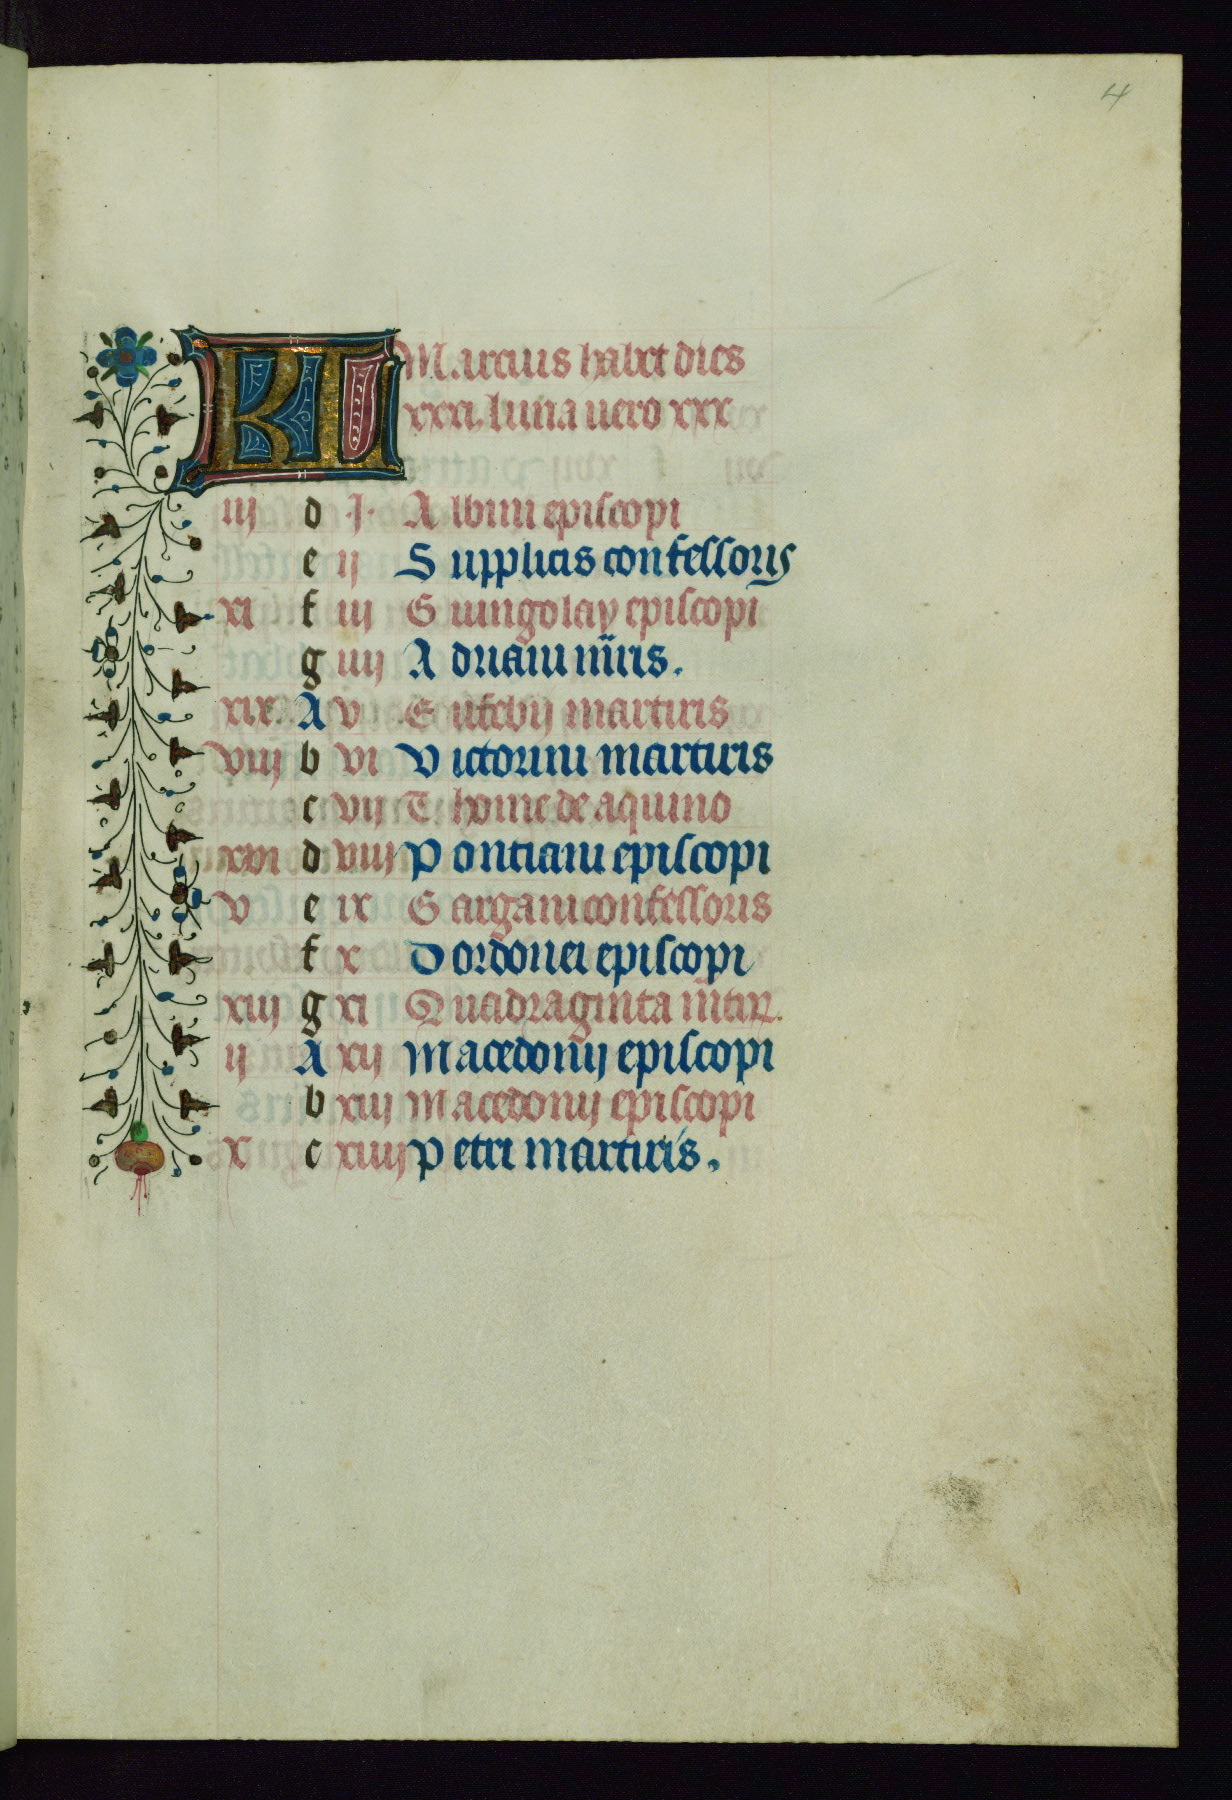 4
KL Marcius habet dies
xxxi. luna uero xxx
iij d J. Albini episcopi
e ij Supplicis confessoris
xi f iij Guingolay episcopi
g iiij Adriani mris.
xix. A v Eusebij martiris
viij b vi Victorini martiris
c vij Thome de aquino
xvi d viij Pontiani episcopi
v e ix Gargani confessoris
f x Dordonei episcopi
xiij g xi Quadraginta mtir.
ij A xij Macedonij episcopi
b xiij Macedonij episcopi
x c xiiij Petri martiris.